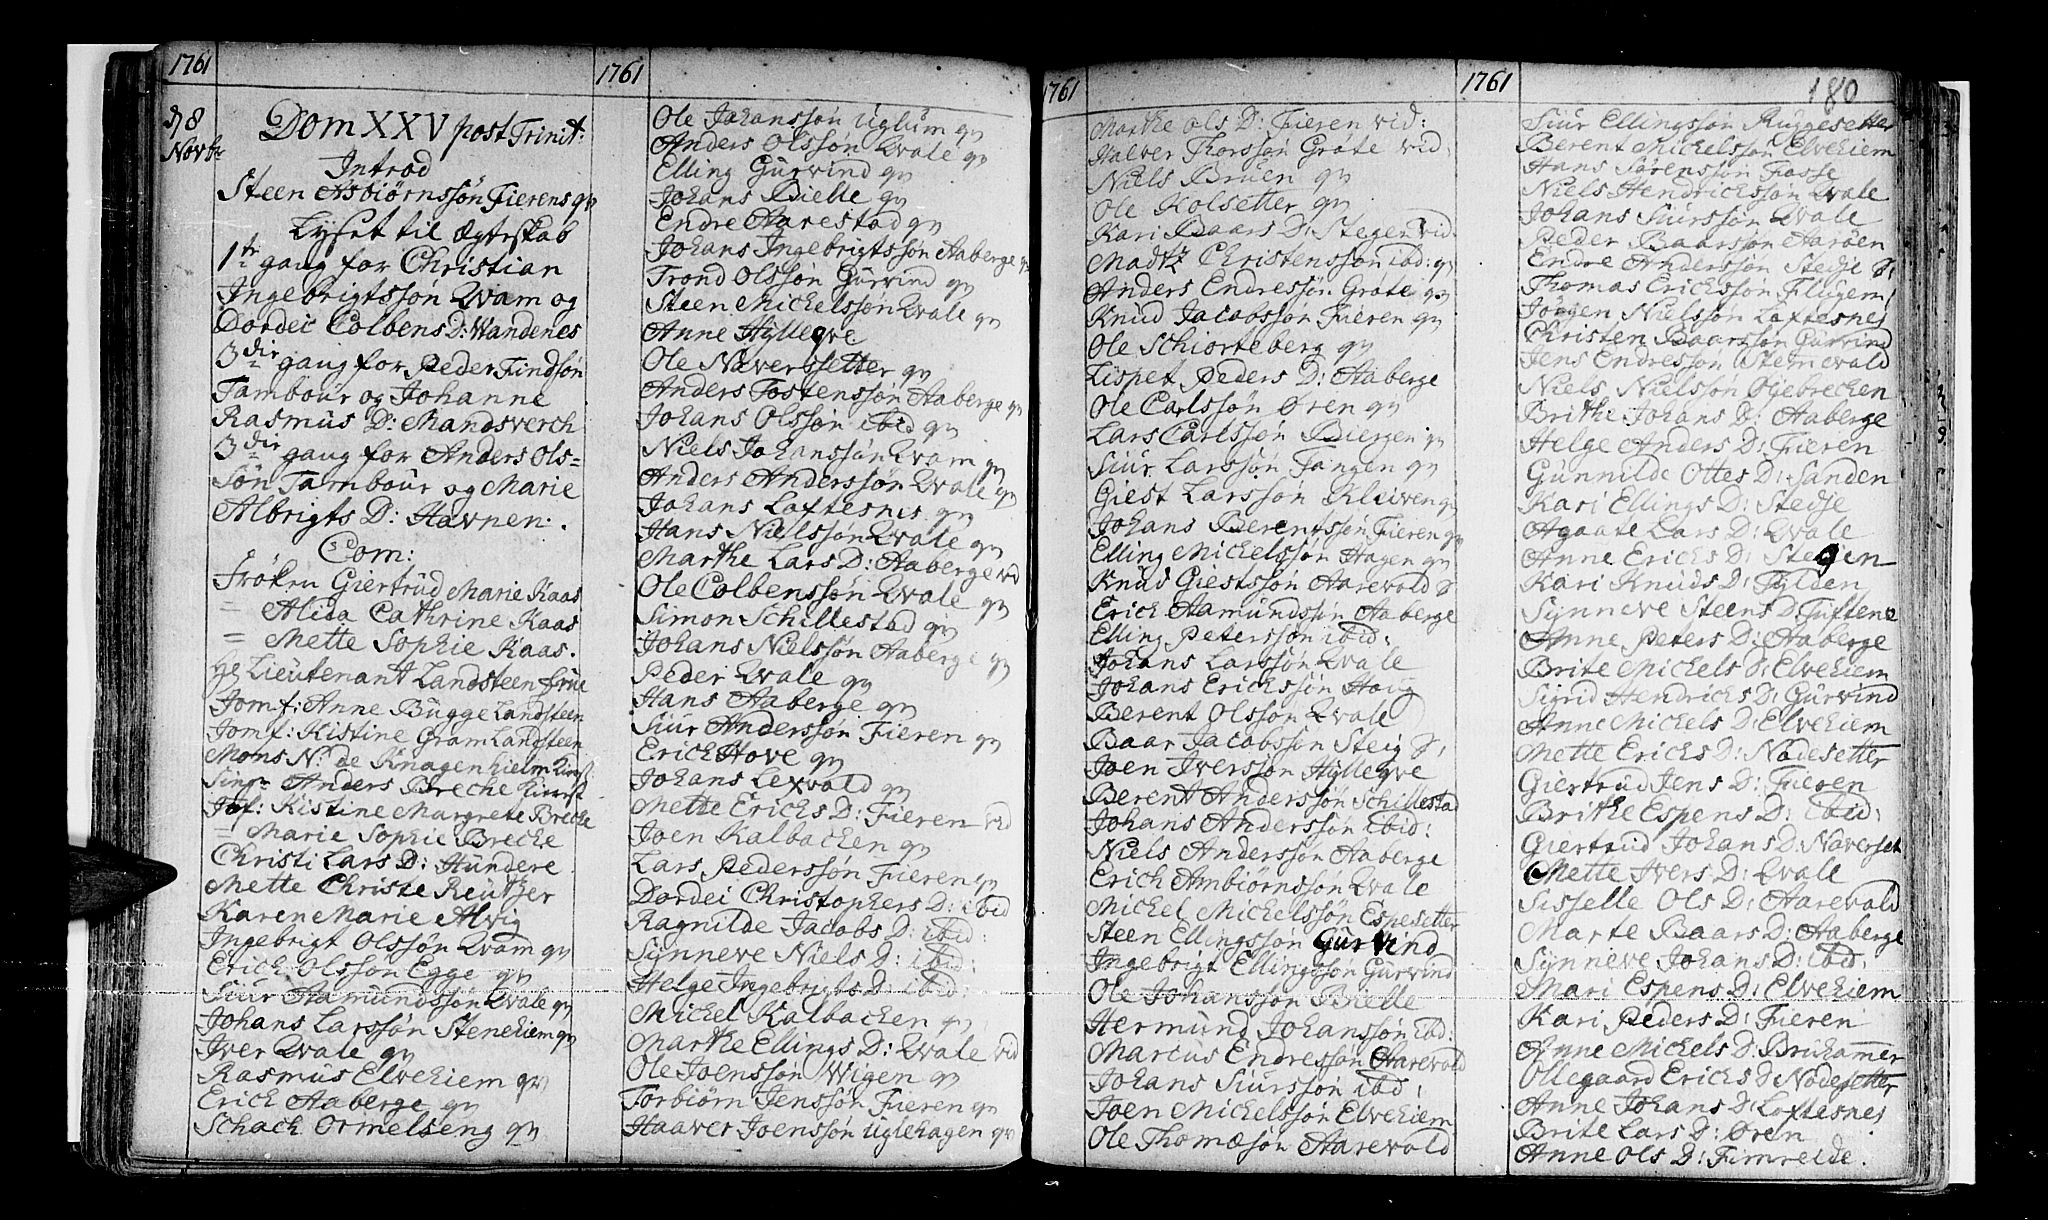 1761
d 8
Novbr
Dom XXV post Trinit:
Introd
Steen Asbiørnssøn Fierens qv
Lyset til Ægteskab
1te gang for Christian
Ingebrigtssøn Qvam og
Dordei Colbens D: Wandenes
3die gang for Peder Findsøn
Tambour og Johanne
Rasmus D: Mandsverch
3die gang for Anders Ols=
Søn Tambour og Marie
Albrigts D: Havnen.
Com:
Frøken Giertrud Marie Kaas
= Alida Cathrine Kaas
= Mette Sophie Kaas.
Hr Lieutenant Landsteen Frue
Jomf: Anne Bugge Landsteen
Jomf: Kistine Gram Landsteen
Mons N. de Knagenhielm
Anders Breche
Jof: Kistine Margrete Breche
= Marie Sophie Breche
Christi Lars D: Hundere
Mette Christe Reutzer
Karen Marie Alvig
Ingebrigt Olssøn Qvam qv
Erich Olssøn Egge qv
Siur Aamundssøn Qvale qv
Johans Larssøn Stenehiem qv
Iver Qvale qv
Rasmus Elvehiem qv
Erich Aaberge qv
Schack Ormelseng qv
1761
Ole Johanssøn Uglum qv
Anders Olssøn Qvale qv
Elling Gurvind qv
Johans Bielle qv
Endre Aarestad qv
Johans Ingebrigtssøn Aaberge qv
Trond Olssøn Gurvind qv
Steen Mickelssøn Qvale qv
Anne Hylleqve
Ole Næverssetter qv
Anders Tostenssøn Aaberge qv
Johans Olssøn ibid qv
Niels Johanssøn Qvam qv
Anders Anderssøn Qvale qv
Johans Loftesnes qv
Hans Nielssøn Qvale qv
Marthe Lars D: Aaberge vid
Ole Colbenssøn Qvale qv
Simon Schillestad qv
Johans Nielssøn Aaberge qv
Peder Qvale qv
Hans Aaberge qv
Siur Anderssøn Fieren qv
Erich Hove qv
Johans Lexvold qv
Mette Erichs D: Fieren vid
Joen Kalbachen qv
Lars Pederssøn Fieren qv
Dordei Christophers D: ibid
Ragnilde Jacobs D: ibid:
Synneve Niels D: ibid:
Helge Ingebrigts D: ibid:
Mickel Kalbachen qv
Marthe Ellings D: Qvale vid
Ole Joenssøn Wigen qv
Torbiørn Jenssøn Fieren qv
Haaver Joenssøn Uglehagen qv
1761
Marthe Ols D: Fieren vid:
Halver Thorssøn Grote vid
Niels Bruen qv
Ole Kolsetter qv
Kari Baars D: Stegen vid.
Madtz Christenssøn ibid: qv
Anders Endressøn Grote qv
Knud Jacobssøn Fieren qv
Ole Schiorteberg qv
Lispet Peders D: Aaberge
Ole Carlssøn Øren qv
Lars Carlssøn Biergen qv
Siur Larssøn Fangen qv
Giest Larssøn Kleiven qv
Johans Berentssøn Fieren qv
Elling Mickelssøn Hagen qv
Knud Giestssøn Aarevold
Erich Aamundssøn Aaberge
Elling Peterssøn ibid:
Johans Larssøn Qvale
Johans Erichssøn Houg
Berent Olssøn Qvale
Baar Jacobssøn Steig
Joen Iverssøn Hylleqve
Berent Anderssøn Schillestad
Johans Anderssøn ibid:
Niels Anderssøn Aaberge
Erich Ambiørnssøn Qvale
Mickel Mickelssøn Espesetter
Steen Ellingssøn Gurvind
Ingebrigt Ellingssøn Gurvind
Ole Johanssøn Bielle
Hermund Johanssøn ibd:
Marcus Endressøn Aarevold
Johans Siurssøn ibid:
Joen Mickelssøn Elvehiem
Ole Thomæsøn Aarevold
1761
180
Siur Ellingssøn Ruggesetter
Berent Mickelssøn Elvehiem
Hans Sørenssøn Fosse
Niels Hendrichssøn Qvale
Johans Siurssøn Qvale
Peder Baarssøn Aarøen
Endre Anderssøn Stedje
Thomas Ericssøn Flugem
Jørgen Nielssøn Loftesnes
Christen Baarssøn Gurvind
Jens Endressøn Stemevold
Niels Nielssøn Ogebrechen
Brithe Johans D: Aaberge
Helge Anders D: Fieren
Gunnilde Ottes D: Sanden
Kari Ellings D: Stedje
Agaate Lars D: Qvale
Anne Erichs D: Stegen
Kari Knuds D: Fylden
Synneve Steens D Tuftene
Anne Peters D: Aaberge
Brite Mickels D: Elvehiem
Sigrid Hendrichs D: Gurvind
Anne Mickels D: Elvehiem
Mette Erichs D: Nodesetter
Giertrud Jens D: Fieren
Brithe Espens D: ibid:
Giertrud Johans D: Naverset
Mette Ivers D: Qvale
Sisselle Ols D: Aarevold
Marte Baars D: Aaberge
Synneve Johans D: ibid:
Mari Espens D: Elvehiem
Kari Peders D: Fieren
Anne Mickels D: Bruhammer
Ollegaard Erichs D Nodesetter
Anne Johans D: Loftesnes
Brite Lars D: Øren
Anne Ols D: Fimreide.